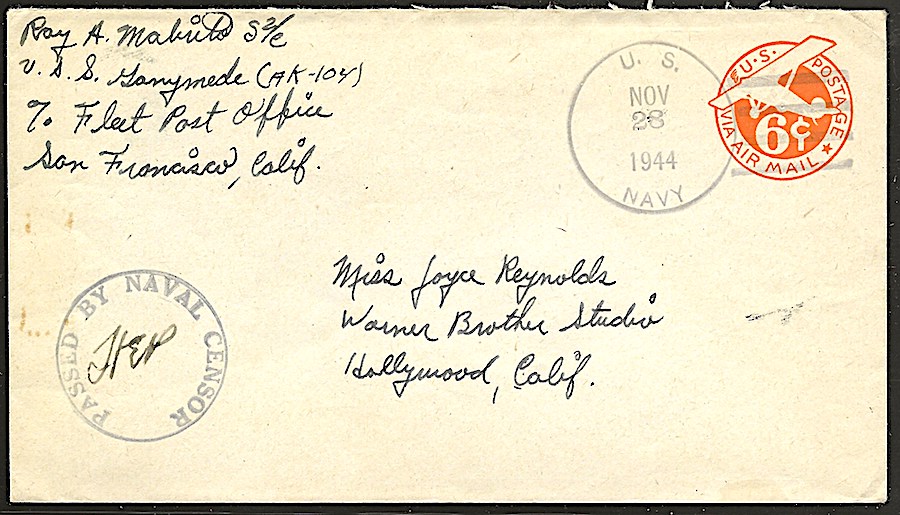 Ray A. S2/c
U.S.S. Ganymede (AK-104)
℅ Fleet Post Office
San Francisco, Calif.
U. S.
NOV
28
1944
NAVY
U.S. POSTAGE
6¢
VIA AIR MAIL
Miss Joyce Reynolds
Warner Brother Studio
Hollywood, Calif.
PASSED BY NAVAL CENSOR